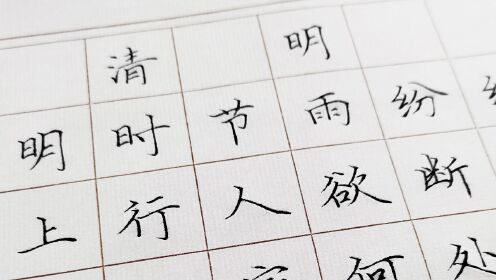 清明
明时节雨纷
上行人欲断
何处